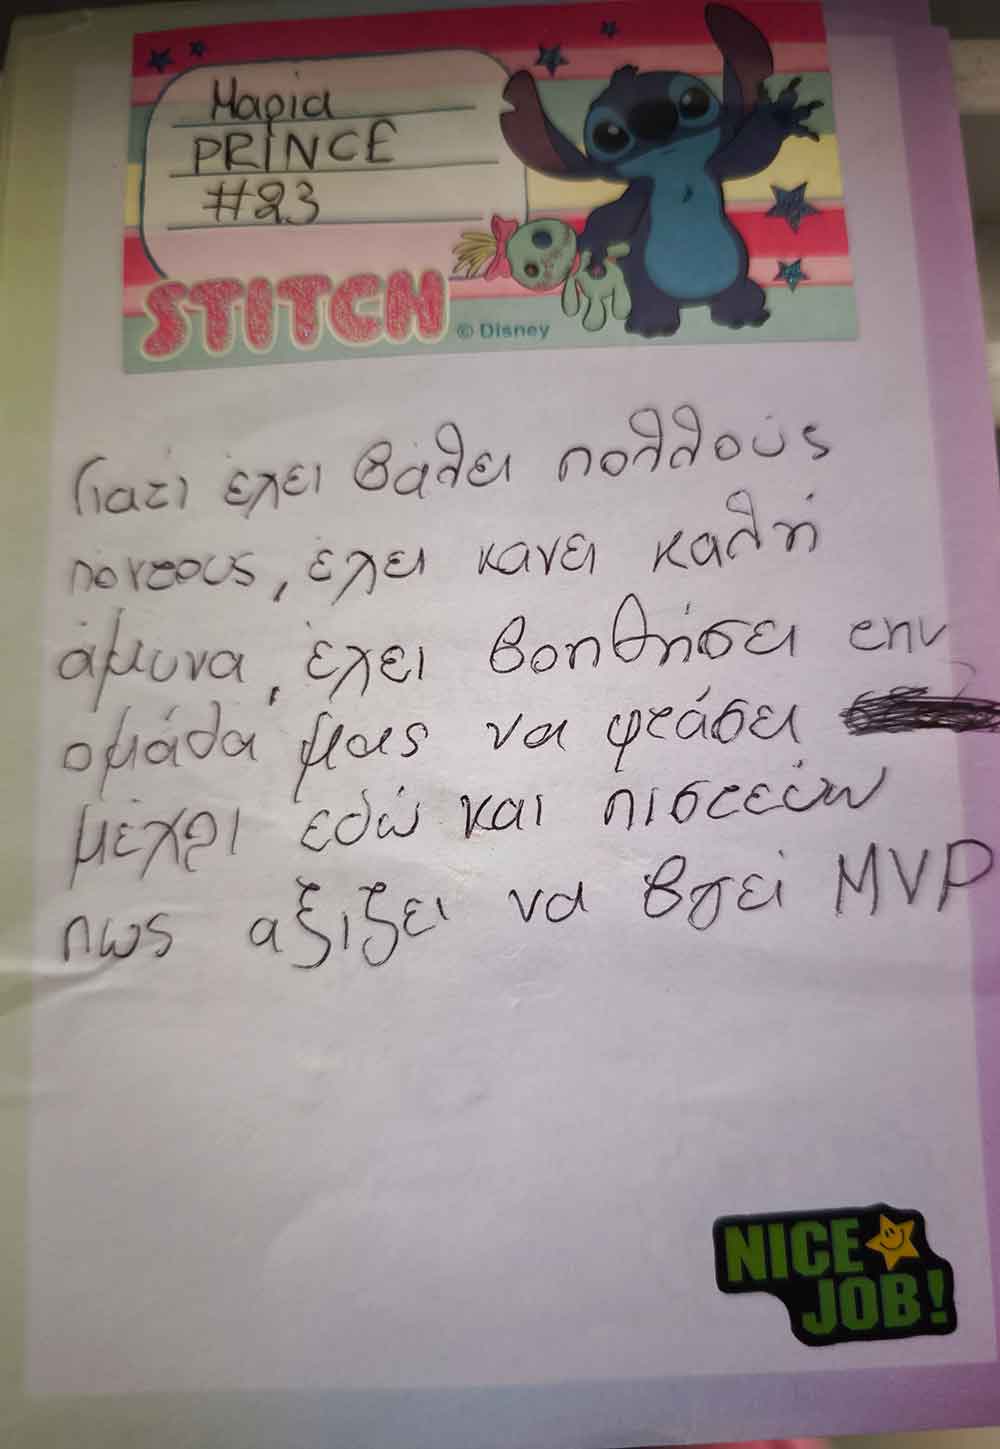 Μαρία
PRINCE
#23
STITCH
© Disney
Γιατί έχει βάλει πολλούς
πόντους, έχει κανει καλή
άμυνα, έχει βοηθήσει την
ομάδα μας να φτάσει
μέχρι εδώ και πιστεύω
πως αξιζει να βγεί MVP
NICE
JOB!